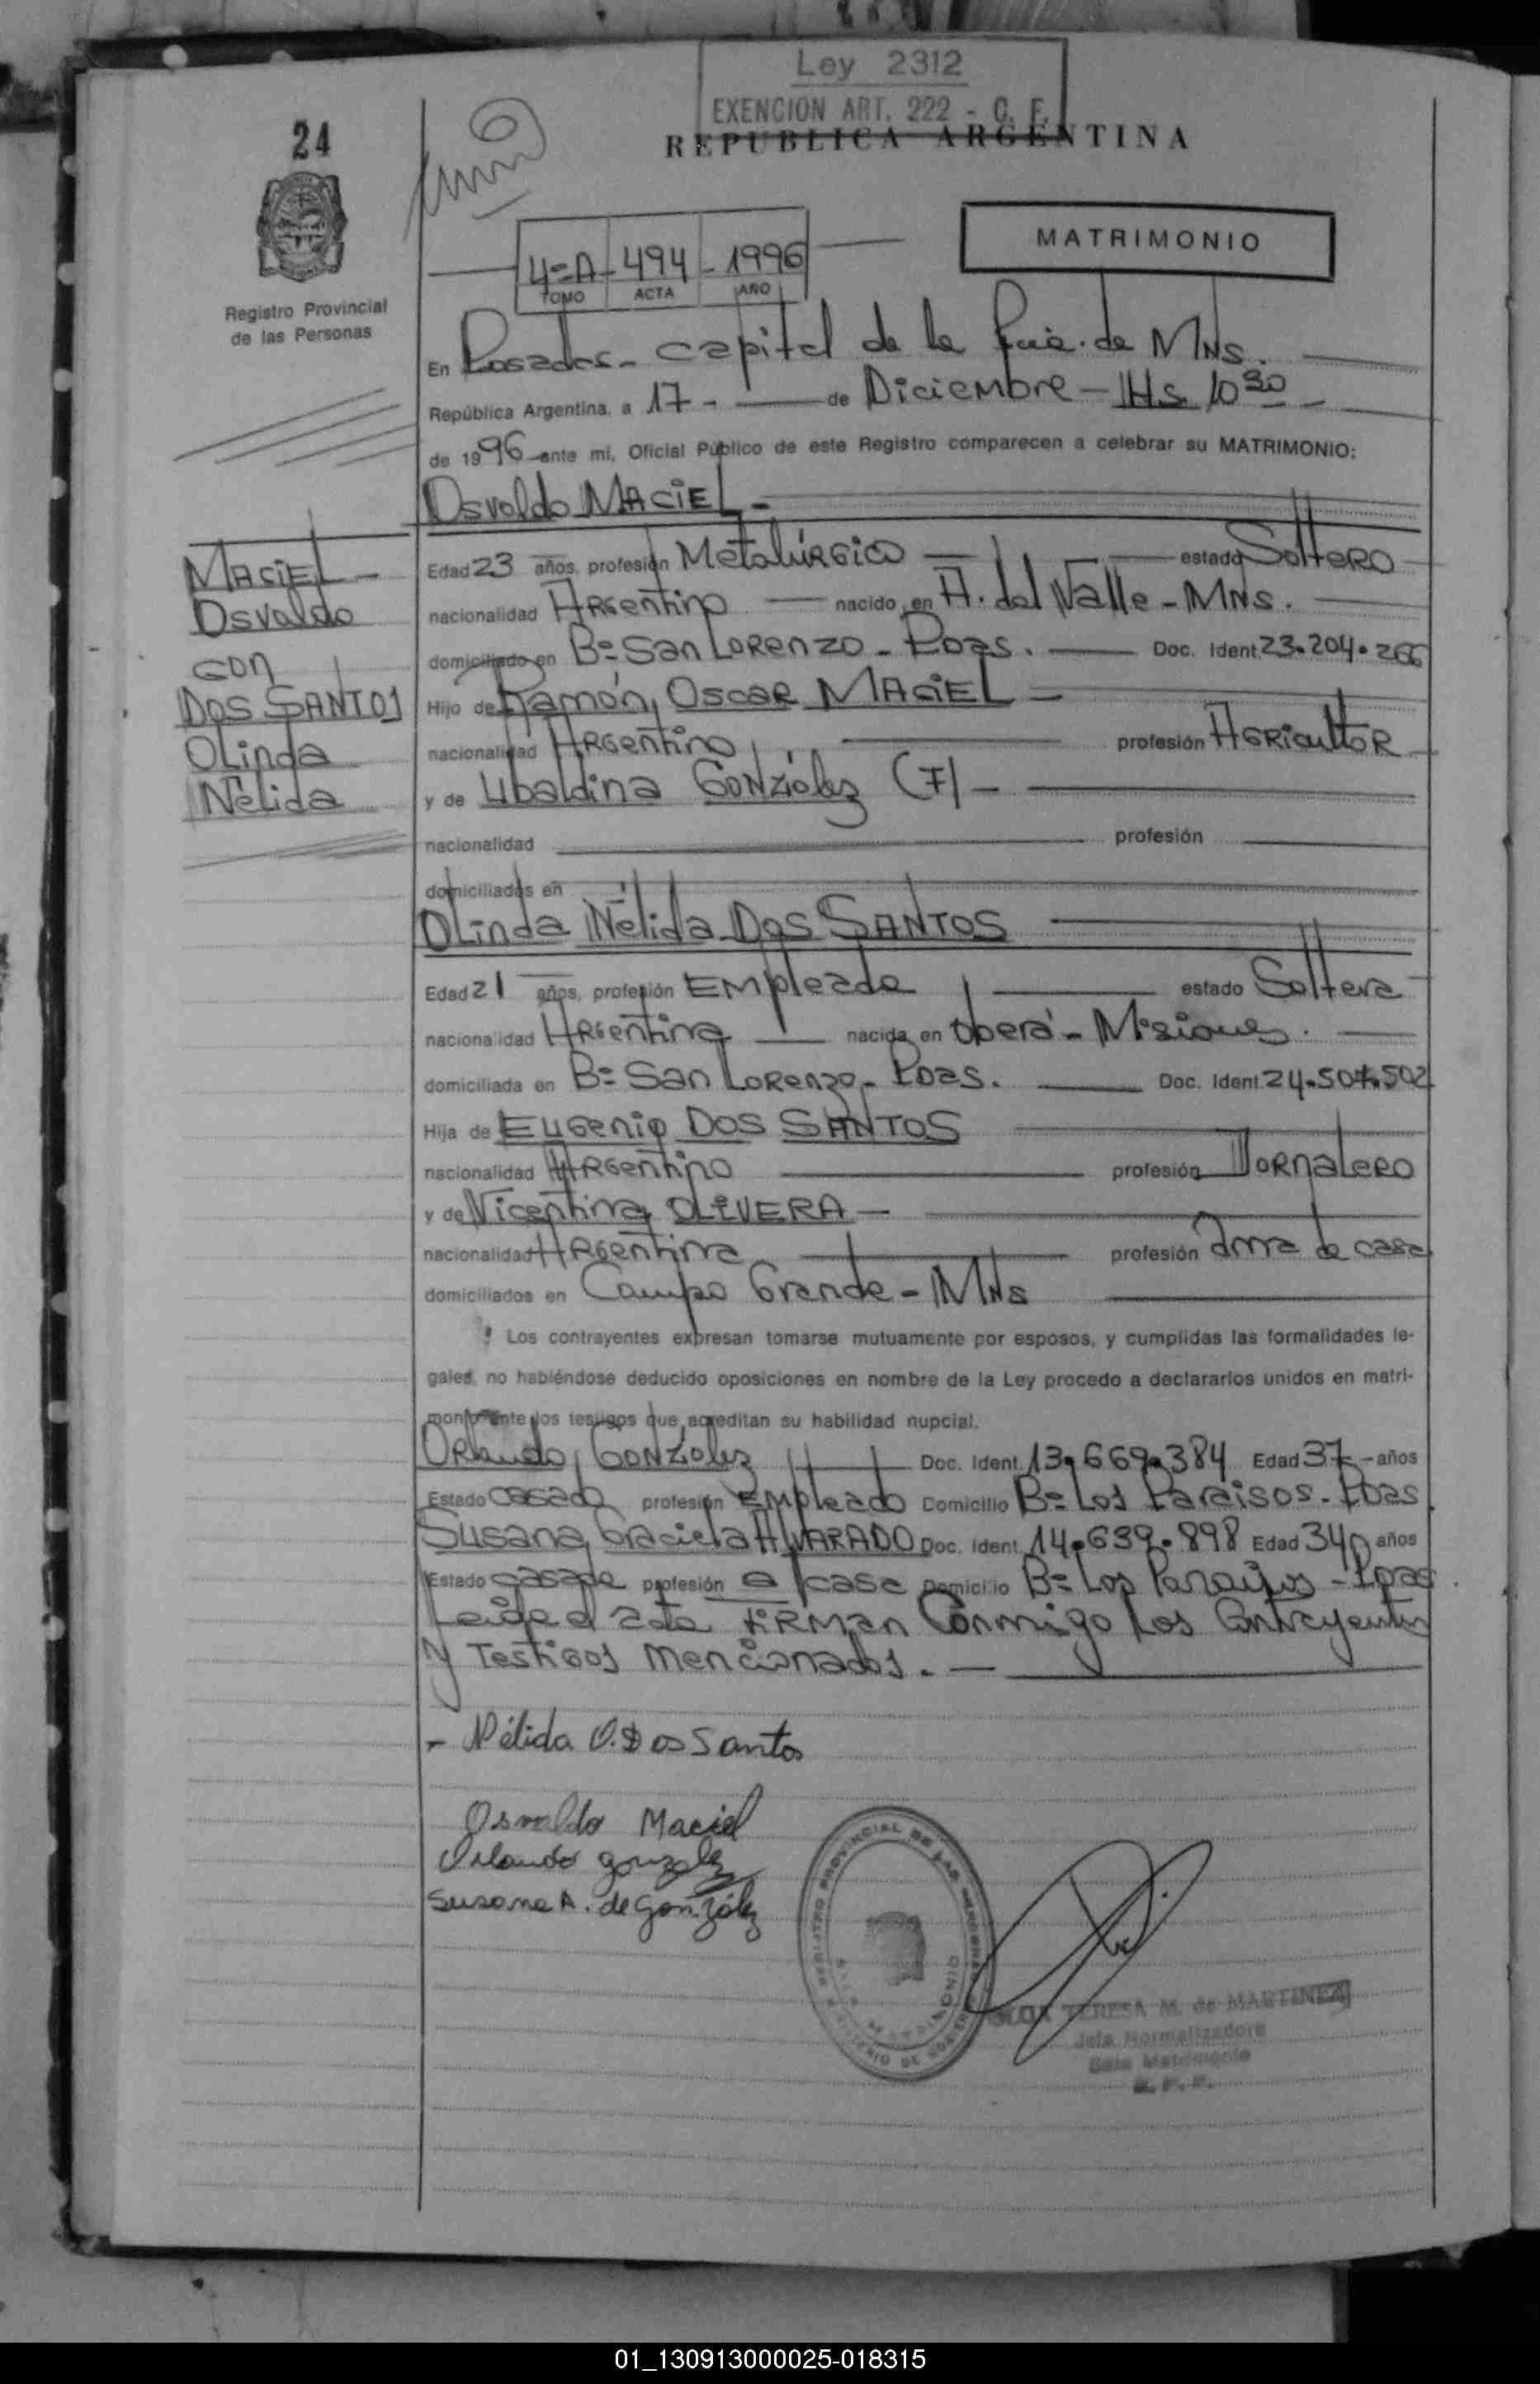 Ley 2312
EXENCION ART. 222 - C. F.
24
REPUBLICA ARGENTINA
MATRIMONIO
4=A - 494 - 1996
TOMO ACTA AÑO
Registro Provincial
de las Personas
En Posadas - capital de la Pcia. de MNS.
República Argentina, a 17 - de Diciembre - Hs. 10 30
de 1996 ante mi, Oficial Público de este Registro comparecen a celebrar su MATRIMONIO:
Osvaldo MACIEL -
MACIEL -
Osvaldo
con
DOS SANTOS
Olinda
Nélida
Edad 23 años, profesión Metalúrgico estado Soltero
nacionalidad Argentino nacido en A. del Valle - MNS.
domiciliado en B= San Lorenzo - Pdas. Doc. Ident. 23.204.266
Hijo de Ramón Oscar MACIEL
nacionalidad Argentino profesión Agricultor
y de Ubaldina González (F) -
nacionalidad profesión
domiciliados en
Olinda Nélida DOS SANTOS
Edad 21 años, profesión Empleada estado Soltera
nacionalidad Argentina nacida en Oberá - Misiones.
domiciliada en B= San Lorenzo - Pdas. Doc. Ident. 24.504.502
Hija de Eugenio DOS SANTOS
nacionalidad Argentino profesión Jornalero
y de Vicentina OLIVERA -
nacionalidad Argentina profesión Ama de casa
domiciliados en Campo Grande - MNS
Los contrayentes expresan tomarse mutuamente por esposos, y cumplidas las formalidades le-
gales, no habiéndose deducido oposiciones en nombre de la Ley procedo a declararlos unidos en matri-
monio ante los testigos que acreditan su habilidad nupcial.
Orlando González Doc. Ident. 13.669.384 Edad 37 - años
Estado casado profesión Empleado Domicilio B= Los Paraisos - Pdas.
Susana Graciela ALVARADO Doc. Ident. 14.639.898 Edad 34 años
Estado casada profesión a/casa Domicilio B= Los Paraisos - Pdas.
Leida el acta firman Conmigo Los Contrayentes
y Testigos mencionados. -
- Nélida O. Dos Santos
Osvaldo Maciel
Orlando gonzalez
Susana A. de González
REGISTRO PROVINCIAL DE LAS PERSONAS
SALA MATRIMONIO
MINISTERIO DE GOBIERNO
TERESA M. de MARTINEZ
Jefa Normalizadora
Sala Matrimonio
01_130913000025-018315